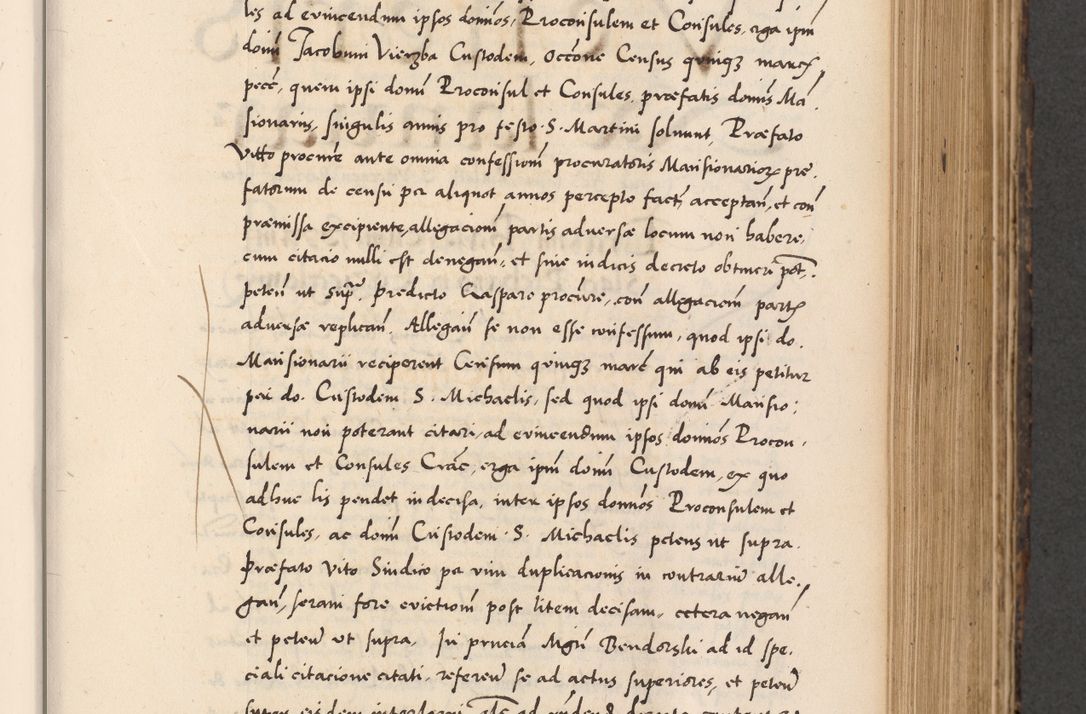 les ad evincendum ipsos dominos, Proconsulem et Consules, erga ipm
domi Jacobum Vierzba Custodem, occōne Census quinqz marcz
pece, quem ipsi domi Proconsul et Consules, præfatis dominis Ma,
sionariis, singulis annis pro festo S. Martini solvunt, Præfato
Vitto procure ante omnia confessionī procuratoris Mansionarioz pre,
fatorum de censu per aliquot annos percepto fact, acceptan, et con
præmissa excipiente, allegacionī partis adversæ locum non habere,
cum citacio nulli est denegan, et sine iudicis decreto obtineri pot.
peten ut supra. Predicto Gaspare procure, con allegacionem partz
adversæ replican, Allegan se non esse confessum, quod ipsi do.
Mansionarii reciperent Censum quinqz marc qui ab eis petitur
per do. Custodem S. Michaelis, sed quod ipsi domi Mansio,
narii non poterant citari, ad evincendum ipsos dominos Procon,
sulem et Consules Crac, erga ipm domi Custodem, ex quo
adhuc lis pendet indecisa, inter ipsos dominos Proconsulem et
Consules, ac domi Custodem S. Michaelis petens ut supra.
Præfato Vito Sindico per vim duplicacionis in contrarium alle,
gan, seram fore evictionī post litem decisam, cetera negan
et peten ut supra. In prncia Mgri Bendorski ad id spe,
ciali citacione citati, referen se ad actus superiores, et peten